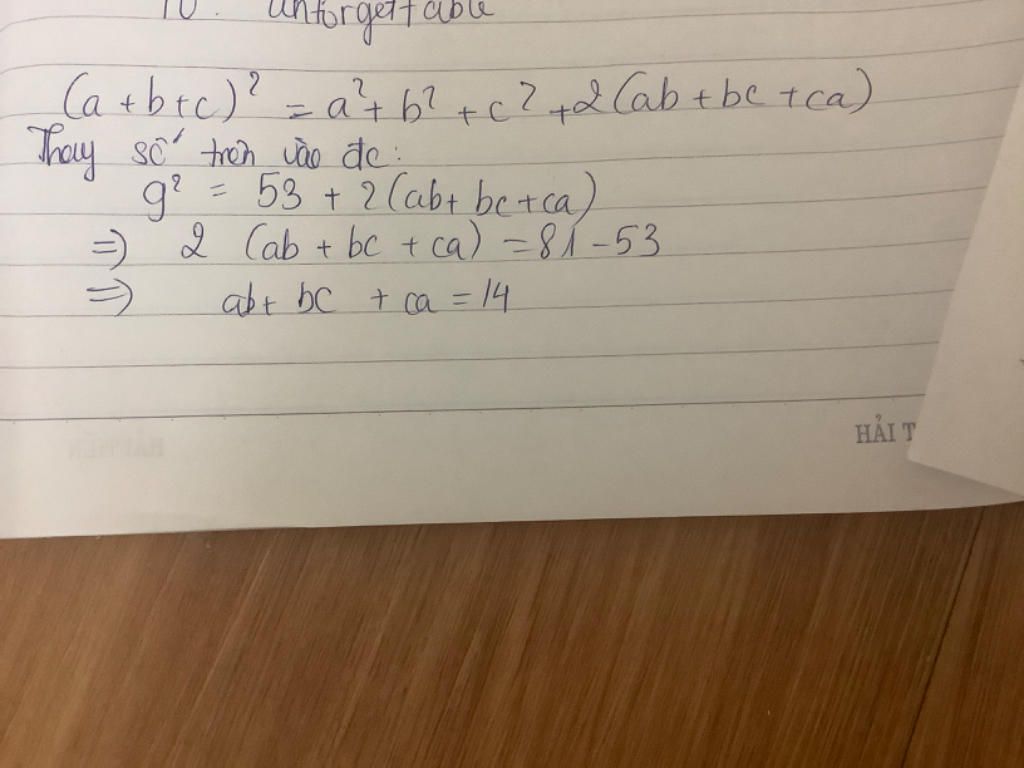 10. unforgettable
(a + b + c)² = a² + b² + c² + 2(ab + bc + ca)
Thay số trên vào đc:
9² = 53 + 2(ab + bc + ca)
=> 2 (ab + bc + ca) = 81 - 53
=> ab + bc + ca = 14
HẢI T